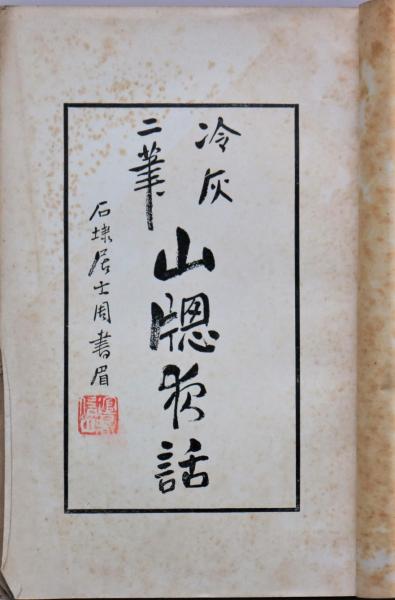 冷灰
二筆
山牕夜話
石埭居士周書眉